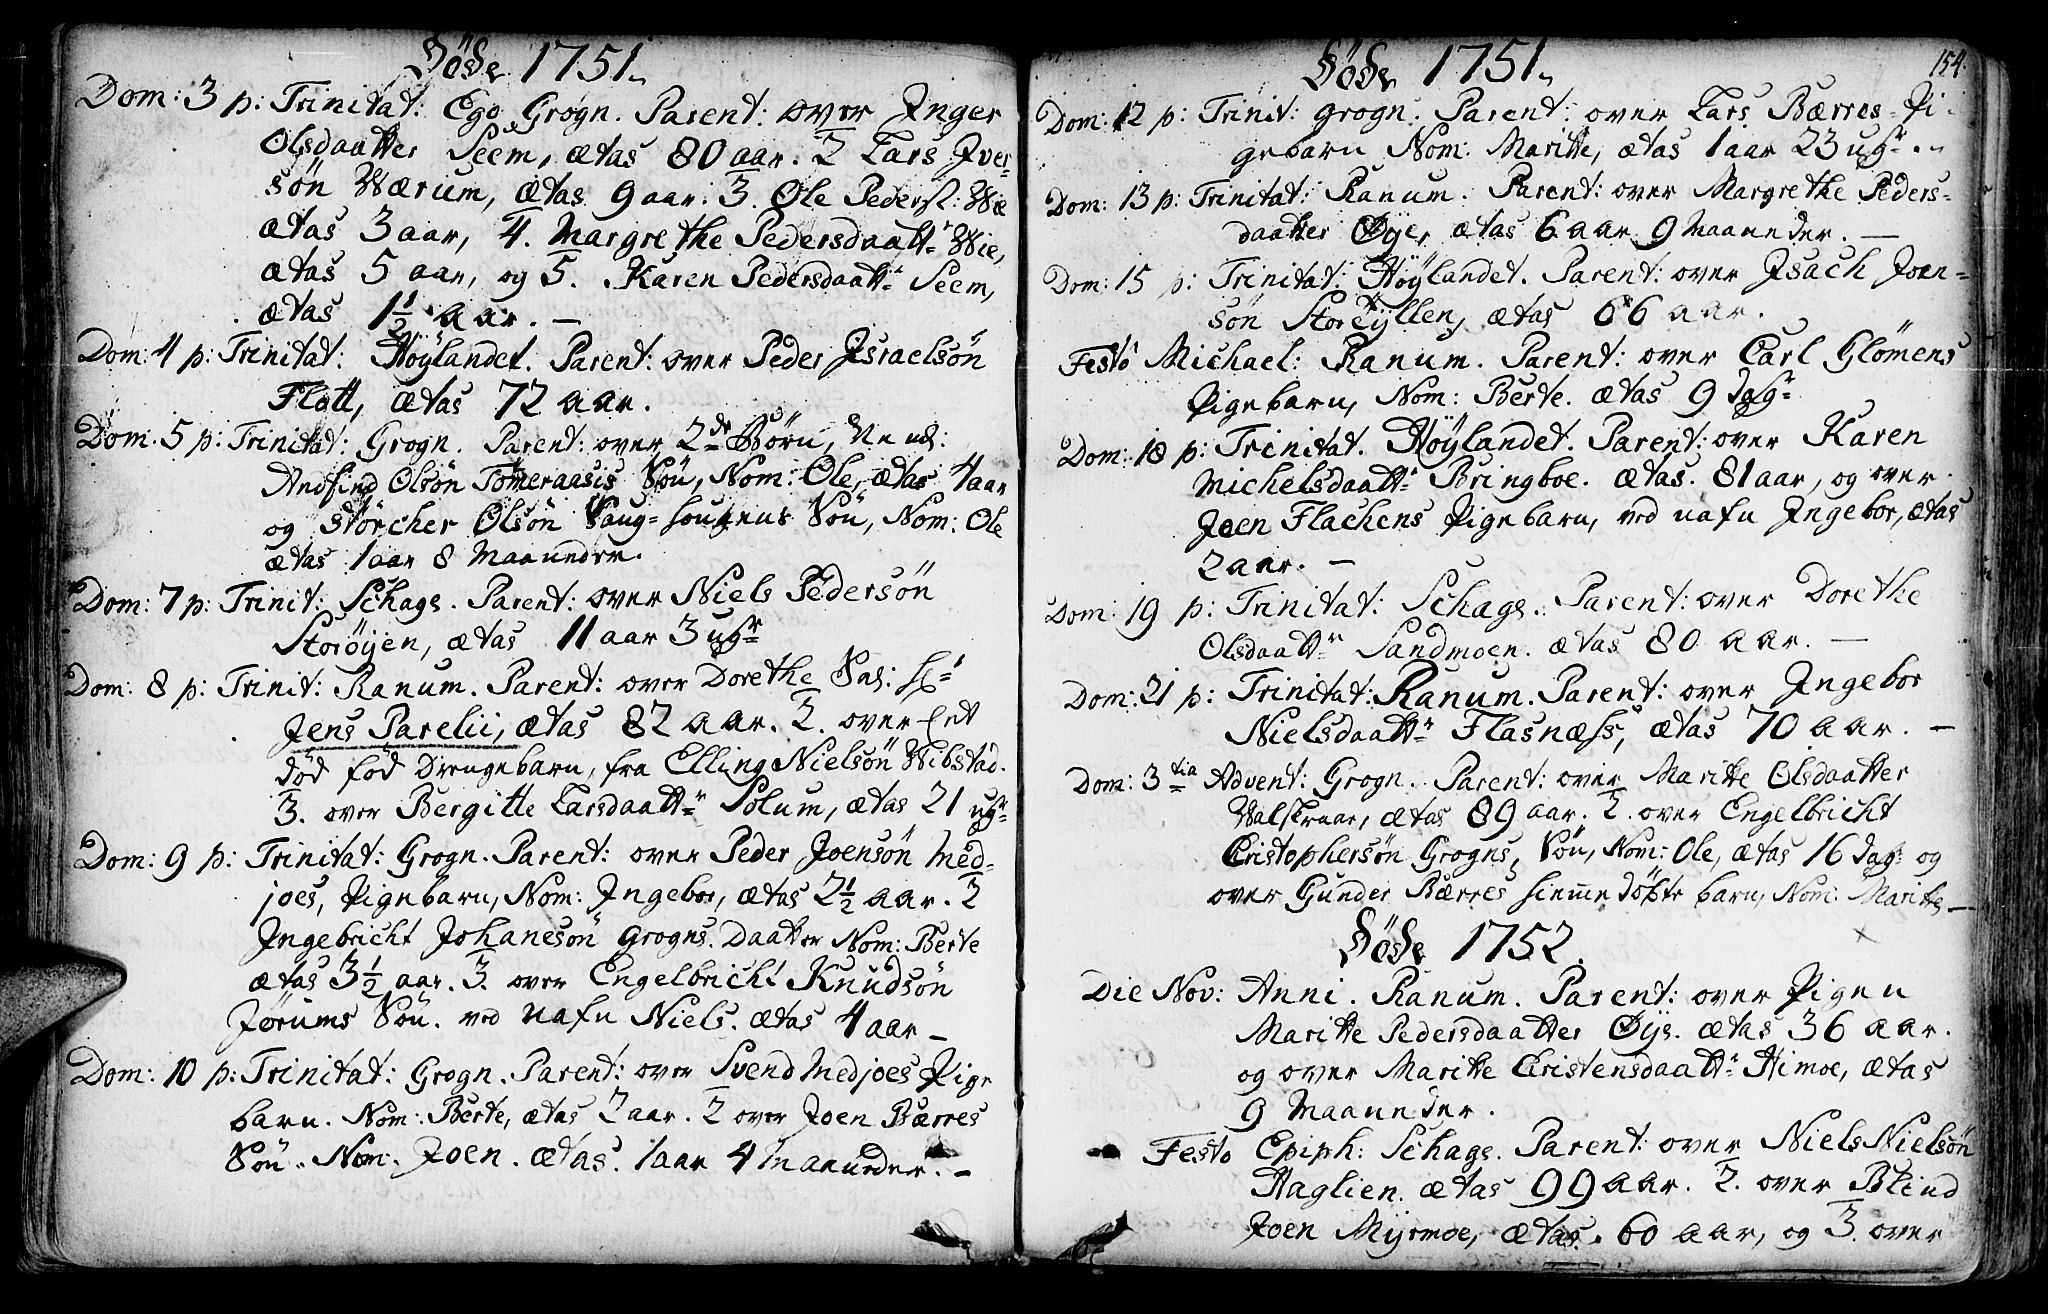 Döde 1751.
Dom: 3 p: Trinitat: Ego Grogn. Parent: over Inger
Olsdaatter Seem, ætas 80 aar. 2 Lars Iver-
søn Værum, ætas 9 aar. 3. Ole Peders: Wie
ætas 3 aar, 4. Margrethe Pedersdaatt: Wie,
ætas 5 aar, og 5. Karen Pedersdaatt: Seem,
ætas 1½ aar. —
Dom: 4 p: Trinitat: Höylandet. Parent: over Peder Israelsön
Flott, ætas 72 aar.
Dom: 5 p: Trinitat: Grogn. Parent: over 2de Börn,
Andfind Olsön Tømeraasis Sön, Nom: Ole, ætas 4 aar
og Störcher Olsön Sön, Nom: Ole
ætas 1 aar 8 Maaneder.
Dom: 7 p: Trinit: Schage. Parent: over Niels Pedersön
Storöyen, ætas 11 aar 3 ugr
Dom: 8 p: Trinit: Ranum. Parent: over Dorethe Sal: Hr
Jens Parelii, ætas 82 aar. 2. over et
död föd Drengebarn, fra Elling Nielsön Vibstad.
3. over Bergitte Larsdaattr Solum, ætas 21 ugr
Dom: 9 p: Trinitat: Grogn. Parent: over Peder Joensön Med-
joes, Pigebarn, Nom: Ingebor, ætas 2½ aar. 2
Ingebricht Johanesön Grogns. Daatter Nom: Berte
ætas 3½ aar. 3. over Engelbricht Knudsön
Jörums Sön. ved nafn Niels. ætas 4 aar —
Dom: 10 p: Trinitat: Grogn. Parent: over Svend Medjoes Pige
barn. Nom: Berte, ætas 2 aar. 2 over Joen Bærres
Sön. Nom: Joen. ætas. 1 aar 4 Maaneder. —
154.
Döde 1751.
Dom: 12 p: Trinit: grogn. Parent: over Lars Bærres Pi-
gebarn Nom: Maritte, ætas 1 aar 23 ugr
Dom: 13 p: Trinitat: Ranum. Parent: over Margrethe Peders-
daatter Öyer, ætas 6 aar 9 Maaneder. —
Dom: 15 p: Trinitat: Höylandet. Parent: over Isach Joen-
sön Storöyllen, ætas 66 aar.
Festo Michael: Ranum. Parent: over Carl Glömens
Pigebarn, Nom: Berte. ætas 9 Dagr
Dom: 18 p: Trinitat. Höylandet. Parent: over Karen
Michelsdaattr Bringboe. ætas. 81 aar, og over
Joen Flachens Pigebarn, ved nafn Ingebor, ætas
2 aar. —
Dom: 19 p: Trinitat: Schage. Parent: over Dorethe
Olsdaattr Sandmoen. ætas 80 aar. —
Dom: 21 p: Trinitat: Ranum. Parent: over Ingebor
Nielsdaattr Flasnæss, ætas 70 aar. —
Dom: 3tia Advent: Grogn. Parent: over Maritte Olsdaatter
Valskraae, ætas 89 aar. 2. over Engelbricht
Cristophersön Grogns, Sön, Nom: Ole, ætas 16 Dag: og
over Gunder Bærres hieme döbte barn, Nom: Maritte —
Döde 1752.
Die Nov: Anni. Ranum. Parent: over Pigen
Maritte Pedersdaatter Öys. ætas 36 aar.
og over Maritte Cristensdaattr Himoe, ætas
9 Maaneder.
Festo Epiph: Schage. Parent: over Niels Nielsön
Haglien. ætas 99 aar. 2. over Blind
Joen Myrmoe, ætas. 60 aar, og 3. over